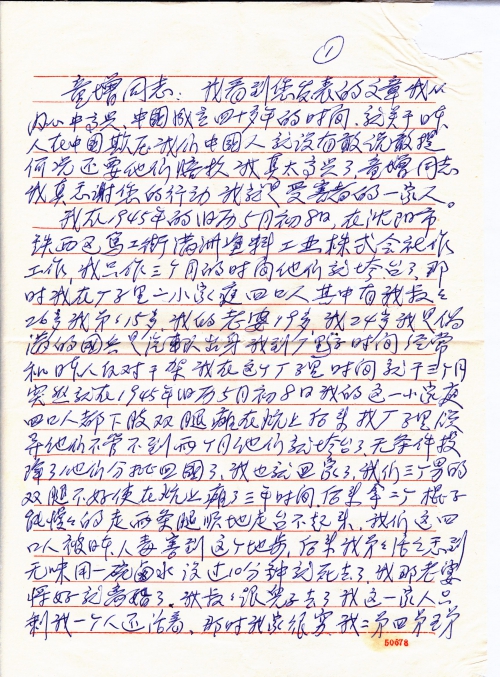 ①
童增同志：我看到您发表的文章我从
内心中高兴.中国成立四十多年的时间.就关于日本
人在中国欺压我们中国人就没有敢说敢提
何况还要他们赔款我真太高兴了童增同志
我真感谢您的行动我就是受害者的一家人。
我在1945年的旧历5月初8日,在沈阳市
铁西区笃工街满洲塑料工业株式会社作
工作,我只作三个月的时间他们就垮台了,那
时我在厂子里一小家庭四口人其中有我叔叔
26岁我弟弟15岁我的老婆19岁我24岁我是伪
满的国兵是汽车队出身我到厂子时间经常
和日本人反对干架我在这个厂子里时间就干三个月
突然就在1945年旧历5月初8日我的这一小家庭
四口人都下肢双腿瘫在炕上后来我厂子里
他们不管不到两个月他们就垮台了.无条件投
降了他们分批回国了.我也就回家了,我们三个男的
双腿不好使在炕上瘫了三年时间.后来拿二个棍子
能慢慢的走两条腿顺地走台不起来,我们这四
口人被日本人毒害到这个地步,后来我弟弟感到
无味用一碗卤水没过10分钟就死去了.我那老婆
好了改婚了.我叔叔去了我这一家人只
剩我一个人还活着.那时我家很穷我二弟四弟五弟
50678